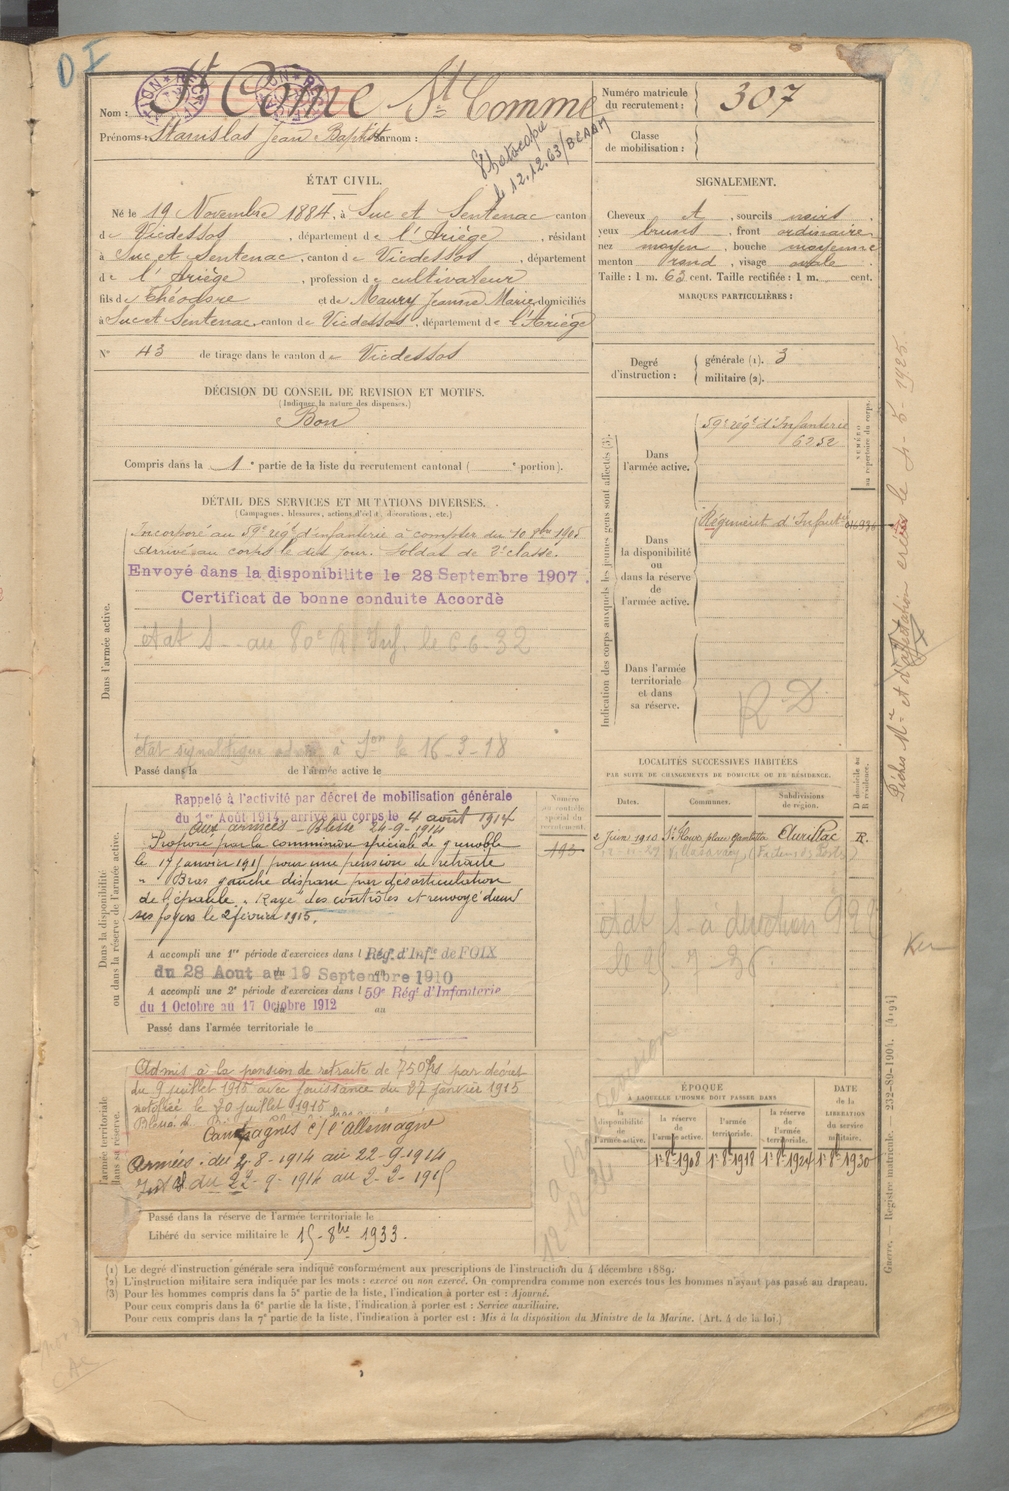 D I
Nom : St Côme St Comme
Prénoms : Stanislas Jean Baptiste Surnom :
Photocopie
le 12.12.63/BCAAM
Numéro matricule
du recrutement : 307
Classe
de mobilisation :
ÉTAT CIVIL.
Né le 19 Novembre 1884, à Suc et Sentenac canton
de Vicdessos, département de l'Ariège, résidant
à Suc et Sentenac, canton de Vicdessos, département
de l'Ariège, profession de cultivateur
fils de Théodore et de Maury Jeanne Marie domiciliés
à Suc et Sentenac, canton de Vicdessos, département de l'Ariège
N° 43 de tirage dans le canton de Vicdessos
SIGNALEMENT.
Cheveux et, sourcils noirs.
yeux bruns, front ordinaire
nez moyen, bouche moyenne
menton rond, visage ovale
Taille : 1 m. 63 cent. Taille rectifiée : 1 m. cent.
MARQUES PARTICULIÈRES :
Degré
d'instruction :
générale (1). 3
militaire (2).
DÉCISION DU CONSEIL DE REVISION ET MOTIFS.
(Indiquer la nature des dispenses.)
Bon
Compris dans la 1e partie de la liste du recrutement cantonal ( e portion).
DÉTAIL DES SERVICES ET MUTATIONS DIVERSES.
(Campagnes, blessures, actions d'éclat, décorations, etc.)
Dans l'armée active.
Incorporé au 59e régt d'infanterie à compter du 10 8bre 1905
arrivé au corps le dit jour. Soldat de 2e classe.
Envoyé dans la disponibilite le 28 Septembre 1907.
Certificat de bonne conduite Accordè
état S au 80e R Inf. le 6-6-32
le 16-3-18
Passé dans la de l'armée active le
Indication des corps auxquels les jeunes gens sont affectés (3).
NUMÉRO
au répertoire du corps.
Dans
l'armée active.
59e régt d'Infanterie
6252
Dans
la disponibilité
ou
dans la réserve
de
l'armée active.
Régiment d'Infant
Dans l'armée
territoriale
et dans
sa réserve.
R D
Dans la disponibilité
ou dans la réserve de l'armée active.
Numéro
au contrôle
spécial du
recrutement.
Rappelé à l'activité par décret de mobilisation générale
du 1er Août 1914, arrivé au corps le 4 août 1914
aux armées - Blessé 24-9-1914
Proposé par la commission spéciale de Grenoble
le 17 janvier 1915 pour une pension de retraite
" Bras gauche disparu par désarticulation
de l'épaule. Rayé des contrôles et renvoyé dans
ses foyers le 2 février 1915.
A accompli une 1re période d'exercices dans l Rég. d'Infie de FOIX
du 28 Aout au 19 Septembre 1910
A accompli une 2e période d'exercices dans l 59e Régt d'Infanterie
du 1 Octobre au 17 Octobre 1912
Passé dans l'armée territoriale le
LOCALITÉS SUCCESSIVES HABITÉES
PAR SUITE DE CHANGEMENTS DE DOMICILE OU DE RÉSIDENCE.
Dates. Communes. Subdivisions
de région. D domicile ou
R résidence.
2 Juin 1910 St Flour, place Gambetta Aurillac R.
état S à direction
Admis à la pension de retraite de 750frs par décret
du 9 juillet 1915 avec jouissance du 27 janvier 1915
notifiée le 20 juillet 1915
Campagnes c/ l'Allemagne
Armées : du 4-8-1914 au 22-9-1914
Intr du 22-9-1914 au 2-2-1915
Passé dans la réserve de l'armée territoriale le
Libéré du service militaire le 15-8bre 1933.
ÉPOQUE
À LAQUELLE L'HOMME DOIT PASSER DANS
DATE
de la
LIBÉRATION
du service
militaire.
la
disponibilité
de
l'armée active.
la
réserve
de
l'armée active.
l'armée
territoriale.
la
réserve
de
l'armée
territoriale.
1er 8bre 1908 1er 8bre 1918 1er 8bre 1924 1er 8bre 1930
(1) Le degré d'instruction générale sera indiqué conformément aux prescriptions de l'instruction du 4 décembre 1889.
(2) L'instruction militaire sera indiquée par les mots : exercé ou non exercé. On comprendra comme non exercés tous les hommes n'ayant pas passé au drapeau.
(3) Pour les hommes compris dans la 5e partie de la liste, l'indication à porter est : Ajourné.
Pour ceux compris dans la 6e partie de la liste, l'indication à porter est : Service auxiliaire.
Pour ceux compris dans la 7e partie de la liste, l'indication à porter est : Mis à la disposition du Ministre de la Marine. (Art. 4 de la loi.)
Guerre. — Registre matricule. — 232-89-1904. [4194]
Fiches Mle et d'affectation créées le 4-5-1925.